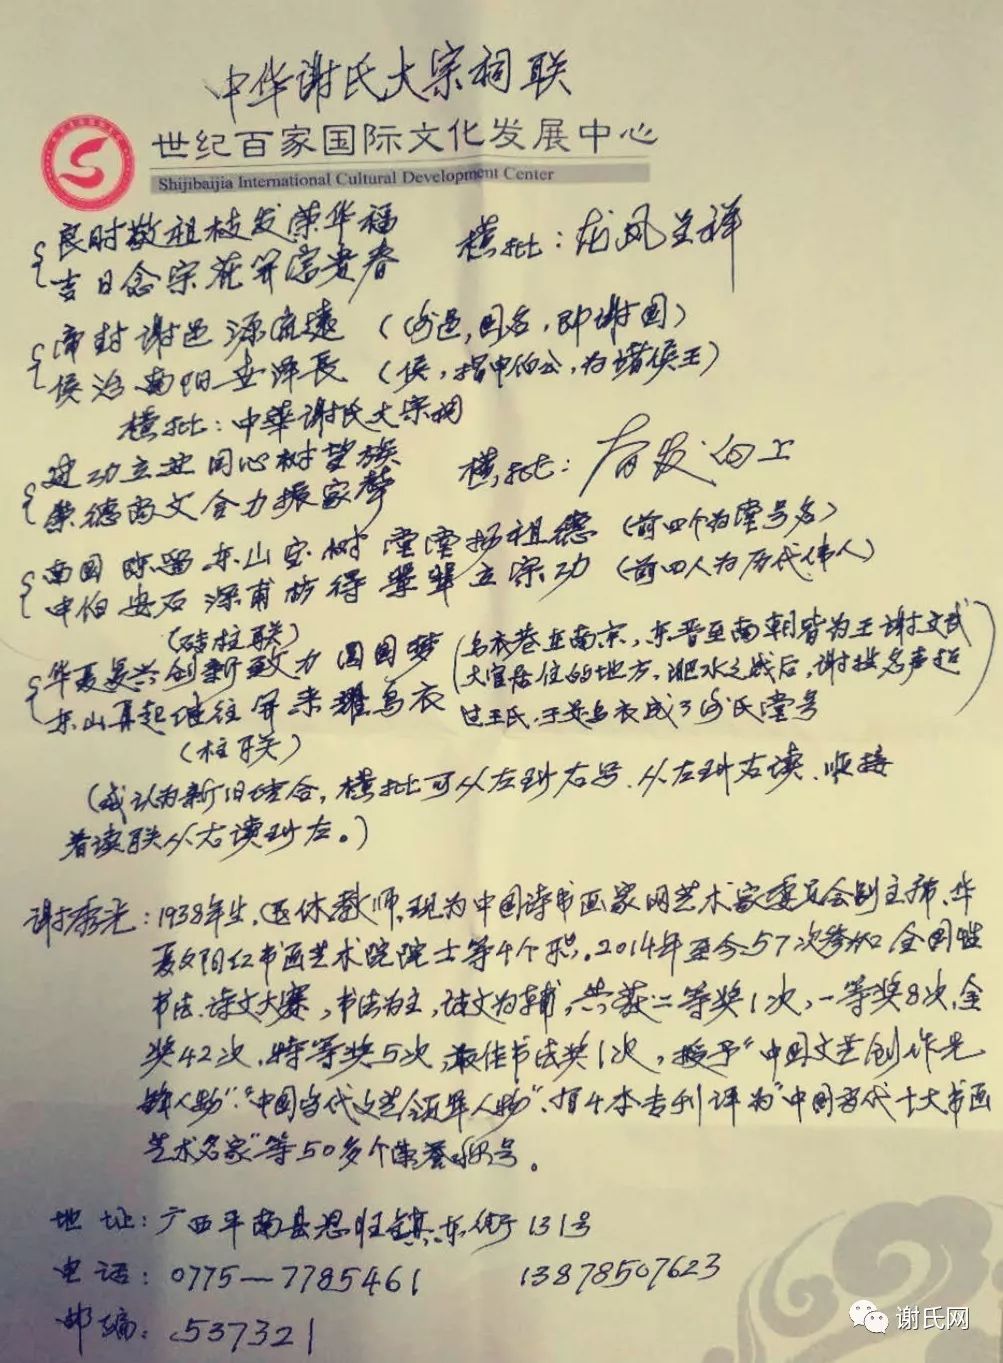 中华谢氏大宗祠联
世纪百家国际文化发展中心
Shijibaijia International Cultural Development Center
良时敬祖枝发荣华福
吉日念宗花开富贵春
横批：龙凤呈祥
帝封谢邑源流远（谢邑，国名，即谢国）
侯治南阳世泽长（侯，指申伯公，为诸侯王）
横批：中华谢氏大宗祠
建功立业同心树望族
崇德尚文合力振家声
横批：奋发向上
南国陈留东山宝树堂堂扬祖德（前四个为堂号名）
申伯安石深甫枋得辈辈立宗功（前四人为历代伟人）
（砖柱联）
华夏复兴创新致力圆国梦
东山再起继往开来耀乌衣
（乌衣巷在南京，东晋至南朝皆为王谢文武
大官居住的地方，淝水之战后，谢族名声超
过王氏，于是乌衣成了谢氏堂号）
（柱联）
（我认为新旧结合，横批可从左到右写，从左到右读，顺接
着读联从右读到左。）
谢秀光：1938年生，退休教师，现为中国诗书画家网艺术家委员会副主席、华
夏夕阳红书画艺术院院士等4个职。2014年至今57次参加全国性
书法、诗文大赛，书法为主，诗文为辅，共获二等奖1次，一等奖8次，金
奖42次，特等奖5次，最佳书法奖1次，授予“中国文艺创作先
锋人物”、“中国当代文艺领军人物”、有4本专刊评为“中国当代十大书画
艺术名家”等50多个荣誉称号。
地 址：广西平南县思旺镇东街131号
电 话：0775—7785461 13878507623
邮编：537321
谢氏网